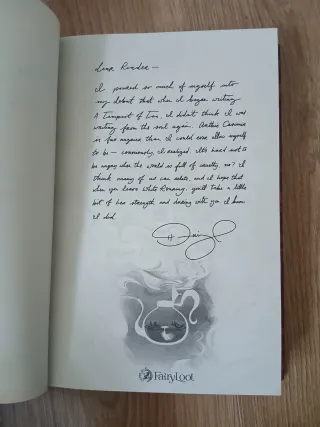 Dear Reader —
I poured so much of myself into
my debut that when I began writing
A Tempest of Tea, I didn't think I was
writing from the soul again. Arthie Casimir
is far angrier than I could ever allow myself
to be — consciously, I realized. It's hard not to
be angry when the world is full of cruelty, no? I
think many of us can relate, and I hope that
when you leave White Roaring, you'll take a little
bit of her strength and daring with you. I know
I did.
FairyLoot